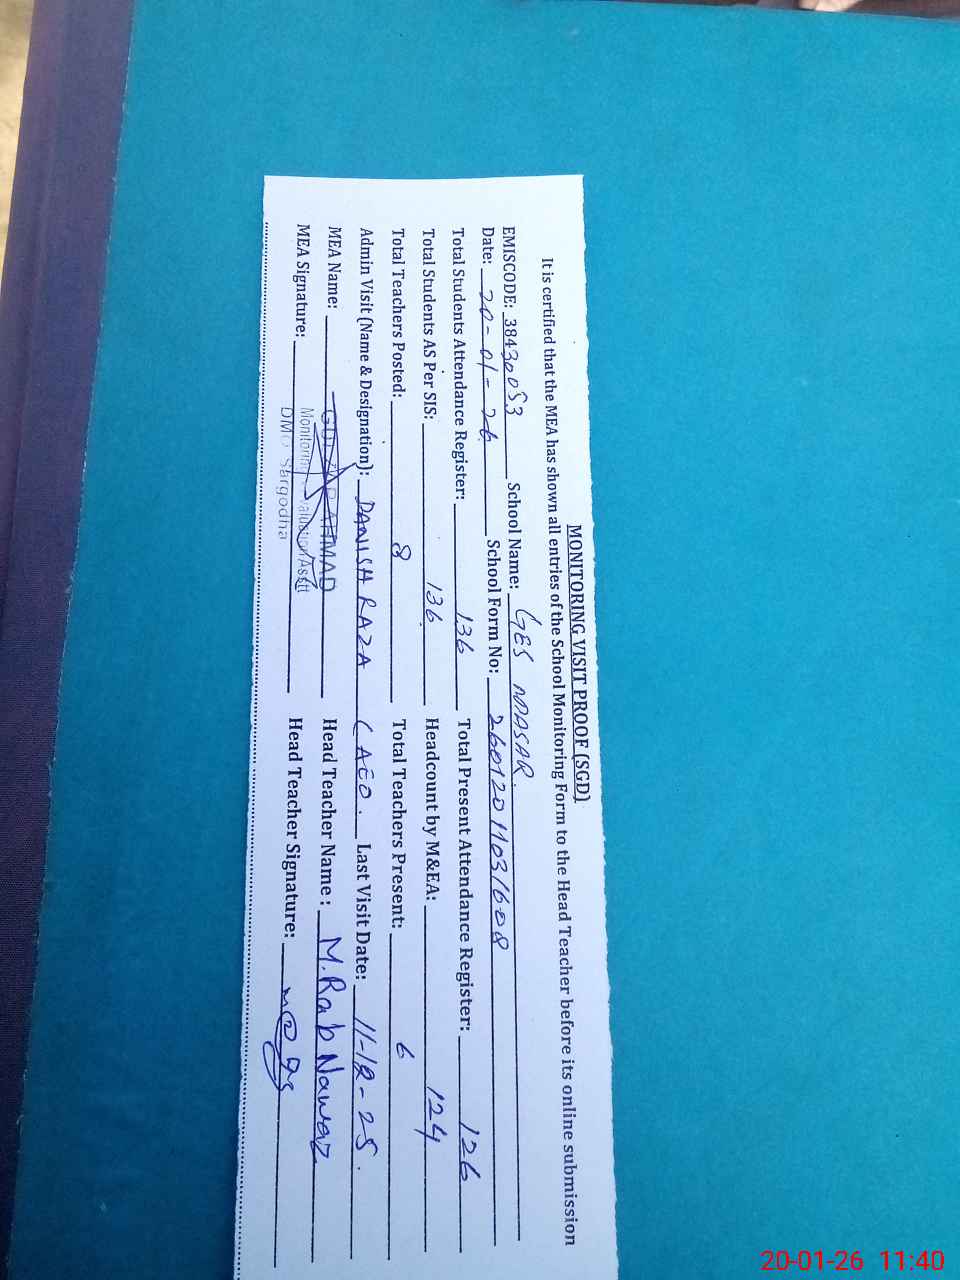 MONITORING VISIT PROOF (SGD)
It is certified that the MEA has shown all entries of the School Monitoring Form to the Head Teacher before its online submission
EMISCODE: 38430053 School Name: GES NASAR.
Date: 20-01-26 School Form No: 26012011031608
Total Students Attendance Register: 136 Total Present Attendance Register: 126
Total Students AS Per SIS: 136 Headcount by M&EA: 124
Total Teachers Posted: 8 Total Teachers Present: 6
Admin Visit (Name & Designation): DANISH RAZA (AEO. Last Visit Date: 11-12-25.
MEA Name: AHMAD Head Teacher Name: M. Rab Nawaz
MEA Signature: Monitoring Asstt Head Teacher Signature:
DMO Sargodha
20-01-26 11:40